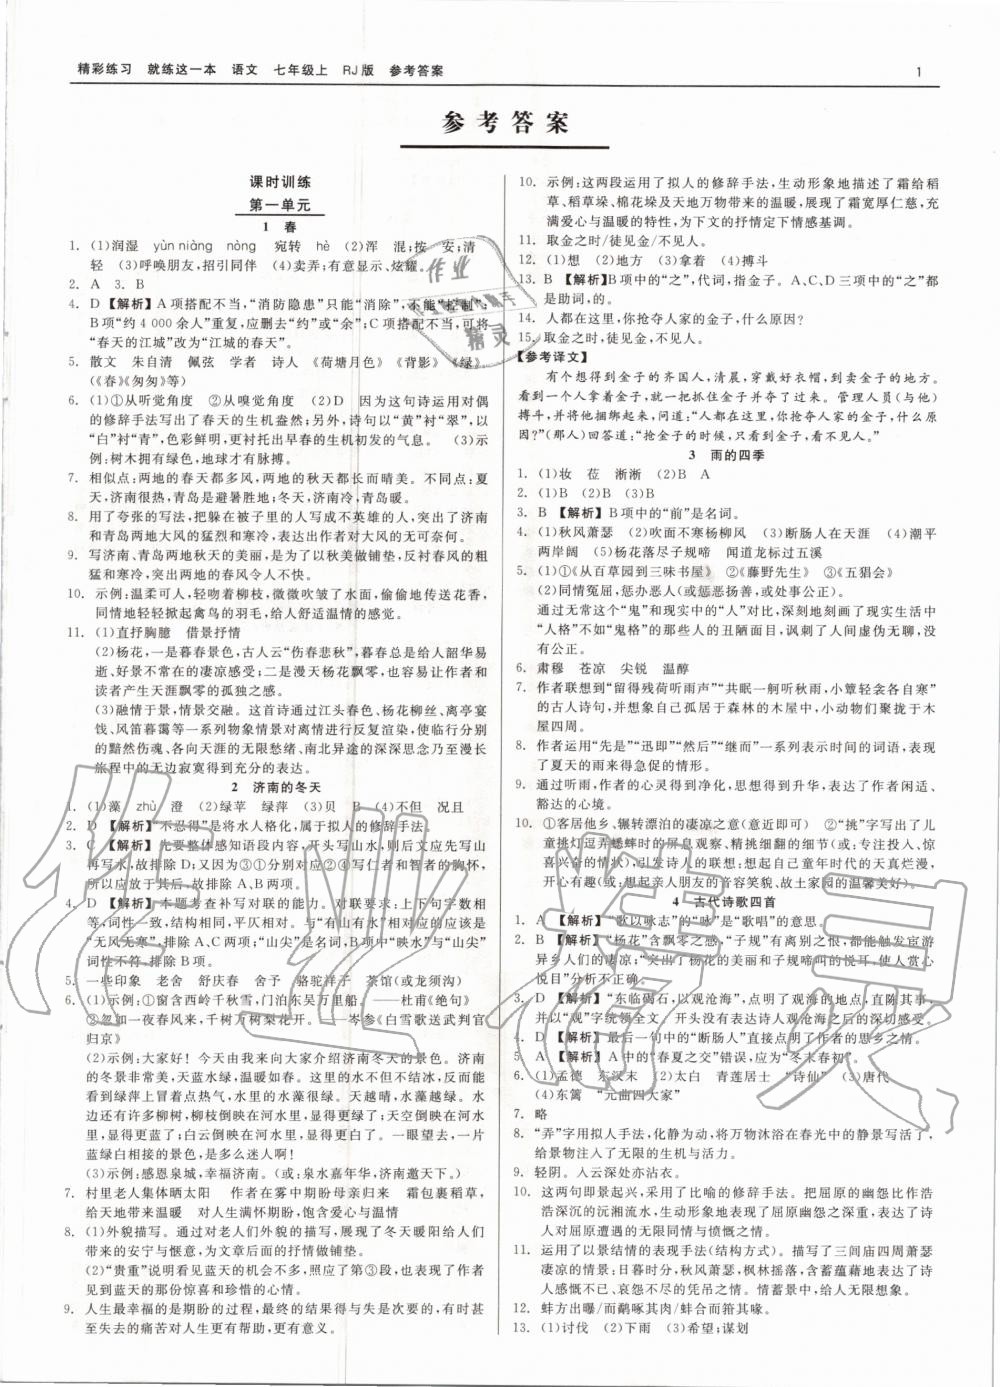 精彩练习 就练这一本 语文 七年级上 RJ版 参考答案 1
参考答案
课时训练
第一单元
1 春
1. (1)润湿 yùn niàng nòng 宛转 hè (2)浑 混;按 安;清
轻 (3)呼唤朋友,招引同伴 (4)卖弄;有意显示、炫耀。
2. A 3. B
4. D 【解析】A项搭配不当,“消防隐患”只能“消除”,不能“控制”;
B项“约4 000余人”重复,应删去“约”或“余”;C项搭配不当,可将
“春天的江城”改为“江城的春天”。
5. 散文 朱自清 佩弦 学者 诗人 《荷塘月色》《背影》《绿》
(《春》《匆匆》等)
6. (1)①从听觉角度 ②从嗅觉角度 (2)D 因为这句诗运用对偶
的修辞手法写出了春天的生机盎然;另外,诗句以“黄”衬“翠”,以
“白”衬“青”,色彩鲜明,更衬托出早春的生机初发的气息。 (3)示
例:树木拥有绿色,地球才有脉搏。
7. 相似点:两地的春天都多风,两地的秋天都很好很美。不同点:夏
天,济南很热,青岛是避暑胜地;冬天,济南冷,青岛暖。
8. 用了夸张的写法,把躲在被子里的人写成不英雄的人,突出了济南
和青岛大风的猛烈和寒冷,表达出作者对大风的无可奈何。
9. 写济南、青岛两地秋天的美丽,是为了以秋美做铺垫,反衬春风的粗
猛和寒冷,突出两地的春风令人不快。
10. 示例:温柔可人,轻吻着柳枝,微微吹皱了水面,偷偷地传送花香,
同情地轻轻掀起禽鸟的羽毛,给人舒适温情的感觉。
11. (1)直抒胸臆 借景抒情
(2)杨花,一是暮春景色,古人云“伤春悲秋”,暮春总是给人韶华易
逝、好景不长的凄凉感受;二是漫天杨花飘零的意境,容易让作者和
读者产生天涯飘零的孤独之感。
(3)融情于景,情景交融。这首诗通过江头春色、杨花柳丝、离亭宴
饯、风笛暮霭等一系列物象情景对离情进行反复渲染,使临行分别
的黯然伤魂、各向天涯的无限愁绪、南北异途的深深思念乃至漫长
旅程中的无边寂寞得到充分的表达。
2 济南的冬天
1. (1)藻 zhù 澄 (2)绿苹 绿萍 (3)贝 B (4)不但 况且
2. D 【解析】“不忍得”是将水人格化,属于拟人的修辞手法。
3. C 【解析】先要整体感知语段内容,从写山到写水,则后文应先写山
再写水,故排除D;又因为③①分别对应②④写仁者和智者的胸怀,
所以③①应在最后,故排除A、B两项。
4. D 【解析】本题考查补写对联的能力。对联要求:上下句字数相
等,词性一致,结构相同,平仄相对。与“有山有水”相对应的应该是
“无风无寒”,排除A、C两项;“山尖”是名词,B项中“映水”与“山尖”
词性不符,排除B项。
5. 一些印象 老舍 舒庆春 舍予 骆驼祥子 茶馆(或龙须沟)
6. (1)示例:①窗含西岭千秋雪,门泊东吴万里船。——杜甫《绝句》
②忽如一夜春风来,千树万树梨花开。——岑参《白雪歌送武判官
归京》
(2)示例:大家好! 今天由我来向大家介绍济南冬天的景色。济南
的冬景非常美好,天蓝水绿,温暖如春。在这个没有风的冬天里,能
看到绿萍上冒着点热气,水里的水藻很绿。天越晴,水藻越绿。水
边还有许多柳树,柳枝倒映在水里,显得更绿了;天空倒映在河水
里,显得更蓝了;白云倒映在水里,显得更白了。一眼望去,一片
蓝绿白相接的景色,是多么迷人啊!
(3)示例:感恩泉城,幸福济南。(或:泉水嘉年华,济南邀天下。)
7. 村里老人集体晒太阳 作者在雾中期盼母亲归来 霜包裹稻草,
给大地带来温暖 对人生满怀期盼,饱含爱心与温情
8. (1)外貌描写。通过对老人们外貌的描写,展现了冬天给人们
带来的安宁与惬意,为文章写蓝天做铺垫。
(2)“贵重”说明看见蓝天的机会不多,照应了第③段,也表现了作者
见到蓝天的那份惊喜和感动的心情。
9. 人生最幸福的是期盼的过程,最终的结果得与失是次要的,有时甚
至失去的痛苦对人生更有帮助,更有意义。
10. 示例:这两段运用了拟人的修辞手法,生动形象地描述了霜给稻
草、稻草垛、棉花垛及大地万物带来的温暖,展现了霜宽厚仁慈,
充满爱心与温暖的特性,为下文的抒情定下情感基调。
11. 取金之时/徒见金/不见人。
12. (1)想 (2)地方 (3)拿着 (4)搏斗
13. B 【解析】B项中的“之”,代词,指金子。A、C、D三项中的“之”都
是助词,的。
14. 人都在这里,你抢夺人家的金子,什么原因?
15. 取金之时,徒见金,不见人。
【参考译文】
有个想得到金子的齐国人,清晨,穿戴好衣帽,到卖金子的地方。
看到一个人拿着金子,就一把抓住金子并夺了过来。管理人员(与他)
搏斗,并将他捆绑起来,问道:“人都在这里,你抢夺人家的金子,什么原
因?”(那人)回答道:“抢金子的时候,只看到金子,没有看到人。”
3 雨的四季
1. (1)妆 莅 淅淅 (2)B A
2. (1)B (2)B (3)B
3. B 【解析】B项中的“前”是名词。
4. (1)秋风萧瑟 (2)吹面不寒杨柳风 (3)断肠人在天涯 (4)潮平
两岸阔 (5)杨花落尽子规啼 闻道龙标过五溪
5. (1)①《从百草园到三味书屋》 ②《藤野先生》 ③《五猖会》
(2)同情冤屈,惩办恶人(或惩恶扬善,或处事公正)。
通过无常这个“鬼”和现实中的“人”对比,深刻地刻画了现实生活中
“人格”不如“鬼格”的那些人的丑陋面目,讽刺了人间虚伪无聊,没
有公正。
6. 肃穆 苍凉 尖锐 温醇
7. 作者联想到“留得残荷听雨声”“共眠一舸听秋雨,小簟轻衾各自寒”
的古人诗句,并想象自己孤居于森林的木屋中,小动物们聚拢于木
屋四周。
8. 作者运用“先是”“迅即”“然后”“继而”一系列表示时间的词语,表现
了夏天的雨来得急促的情形。
9. 通过听雨,作者的心灵得到净化,思想得到升华,表达了作者积极、
豁达的心境。
10. ①客居他乡、辗转漂泊的凄凉之意(意近即可) ②“挑”字写出了儿
童挑逗弄蟋蟀时的屏息观察、精挑细拨的细节(或:专注投入、惊
喜兴奋的情状),引发诗人的联想,想起自己童年时代的天真烂漫,
开心欢乐(或:想起亲人朋友的音容笑貌,故土家园的温馨美好)。
4 古代诗歌四首
1. A 【解析】“歌以咏志”的“咏”是“歌唱”的意思。
2. B 【解析】“杨花”含飘零之感,“子规”有离别之恨,都能触发宦游
异乡人们的凄凉;“突出了杨花的美丽和子规啼叫的悦耳,使人赏心
悦目”分析不正确。
3. D 【解析】“东临碣石,以观沧海”,点明了观海的地点,直陈其事,
并以“观”字统领全文。开头没有表现大海给人的深切感受。
4. D 【解析】最后一句中的“断肠人”直接点明了作者的思乡之情。
5. A 【解析】A中的“春夏之交”错误,应为“冬末春初”。
6. (1)孟德 东汉末 (2)太白 青莲居士 “诗仙” (3)唐代
(4)东篱 “元曲四大家”
7. 略
8. “弄”字用拟人手法,化静为动,将万物沐浴在春光中的静景写活了,
给景物注入了无限的生机与活力。
9. 轻阴。入云深处亦沾衣。
10. 这两句即景起兴,采用了比喻的修辞手法。把屈原的幽怨比作浩
浩深沉的沅湘流水,生动形象地表现了屈原的幽怨之深,表达了诗
人对屈原遭遇的无限同情与愤慨之情。
11. 运用了以景结情的表现手法(结构方式)。描写了三闾庙四周萧瑟
凄凉的情景:日暮时分,秋风萧瑟,枫林摇落,含蓄蕴藉地表达了诗
人感慨不已、哀怨不尽的凭吊之情。
12. 蚌方出曝/而鹬啄其肉/蚌合而箝其喙。
13. (1)讨伐 (2)下雨 (3)希望;谋划